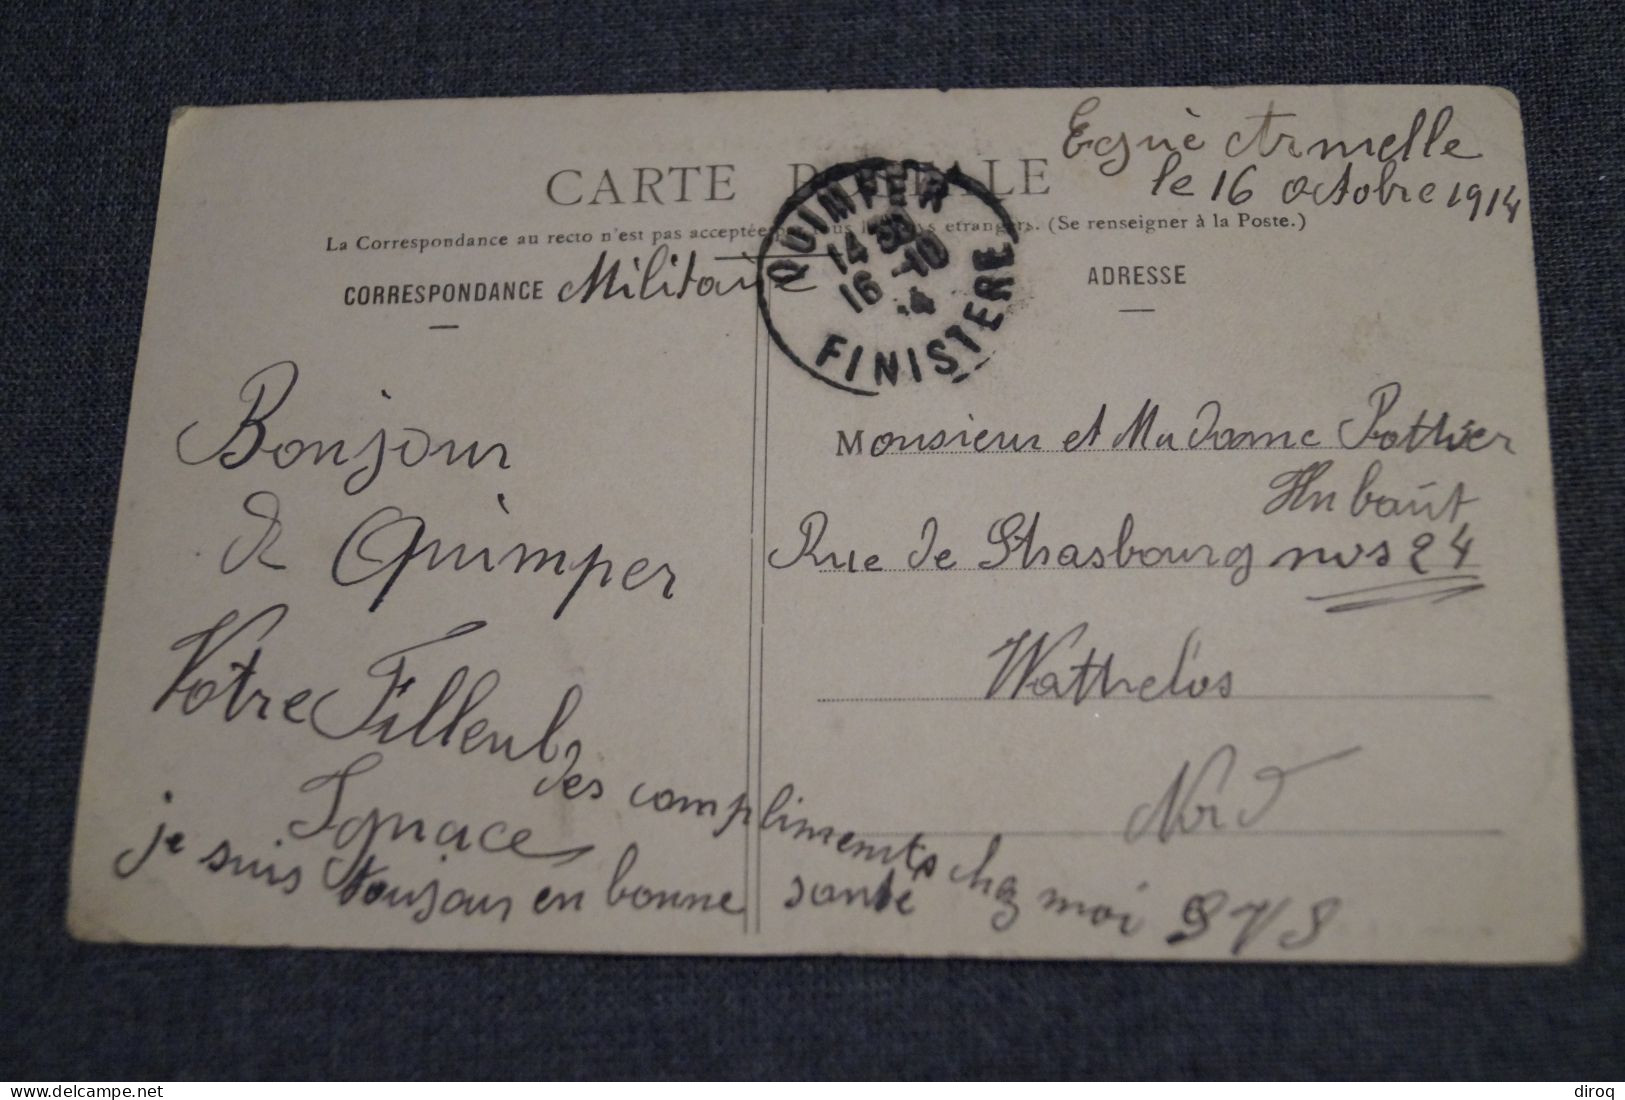 Ergué Armelle
le 16 octobre 1914
CARTE POSTALE
La Correspondance au recto n'est pas acceptée par tous les pays étrangers. (Se renseigner à la Poste.)
CORRESPONDANCE Militaire
ADRESSE
QUIMPER
14 30
16 -10
14
FINISTERE
Bonjour
de Quimper
Votre Filleul
Ignace
des compliments chez moi SVS
je suis toujour en bonne santé
Monsieur et Madame Pottier
Hubaut
Rue de Strasbourg nos 24
Wattrelos
Nord
diroq